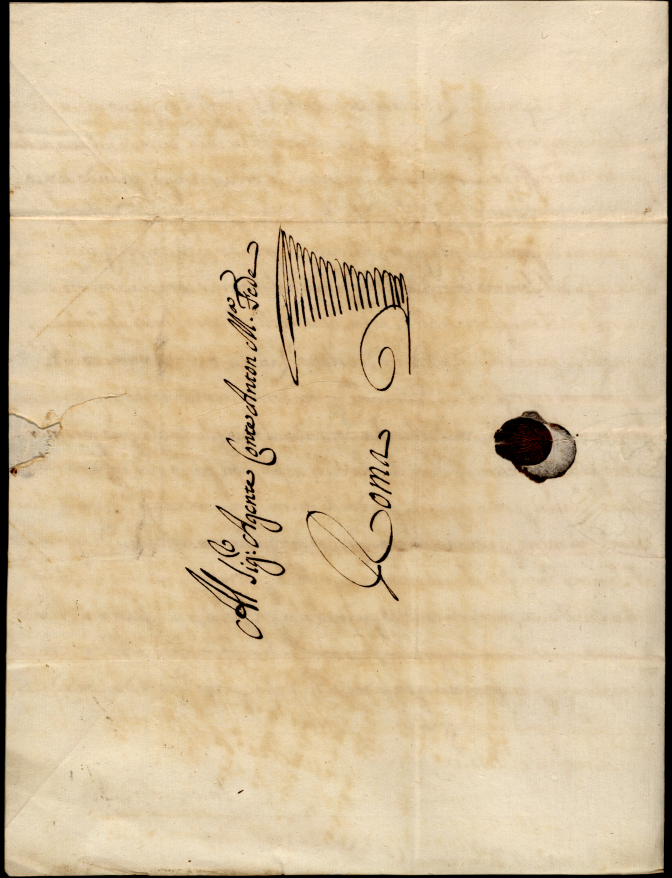 All
Sig: Agente Conte Anton M.ª Fede
Roma